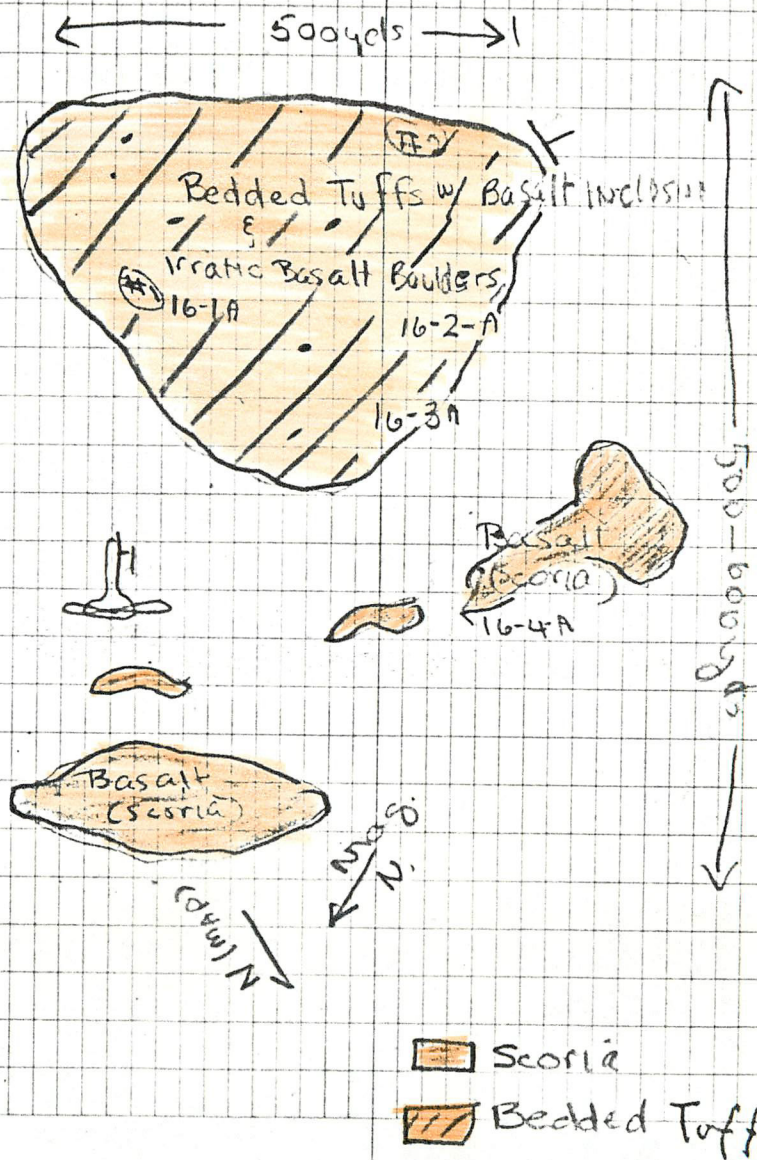 500yds
#2
Bedded Tuffs w/ Basalt Inclosion
&
Irratic Basalt Boulders
#1
16-1A
16-2-A
16-3A
500-600yds
Basalt
(Scoria)
16-4-A
Basalt
(Scoria)
Mag.
N.
N (MAP)
Scoria
Bedded Tuff